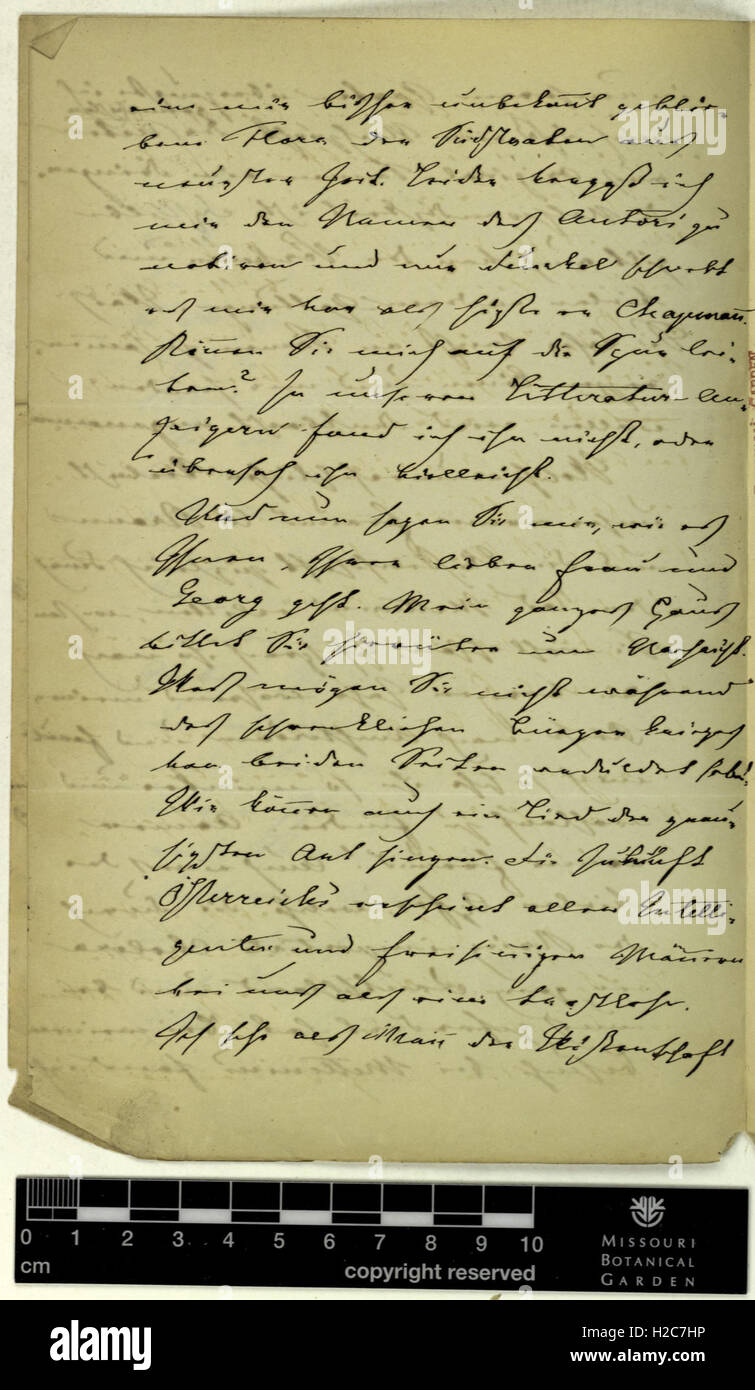 eine mir bisher unbekannt geblie-
bene Flora der Südstaaten aus
neuester Zeit. Leider vergaß ich
mir den Namen des Autors zu
notiren und nur dunkel schwebt
es mir vor als hieße er Chapman.
Können Sie mich auf die Spur lei-
ten? In unseren Litteratur-An-
zeigern fand ich ihn nicht, oder
übersah ihn vielleicht.
Und nun sagen Sie mir, wie es
Ihnen, Ihrer lieben Frau und
Georg geht. Mein ganzes Haus
bittet Sie hierüber um Nachricht.
Was mögen Sie nicht während
des schrecklichen Bürgerkrieges
von beiden Seiten erduldet haben.
Wir können auch ein Lied der grau-
sigsten Art singen. Die Zukunft
Österreichs erscheint allen Intelli-
genten und freisinnigen Männern
bei uns als eine
Ich sehe als Mann der Wissenschaft
0 1 2 3 4 5 6 7 8 9 10
cm
copyright reserved
MISSOURI
BOTANICAL
GARDEN
GARDEN
alamy
Image ID: H2C7HP
www.alamy.com